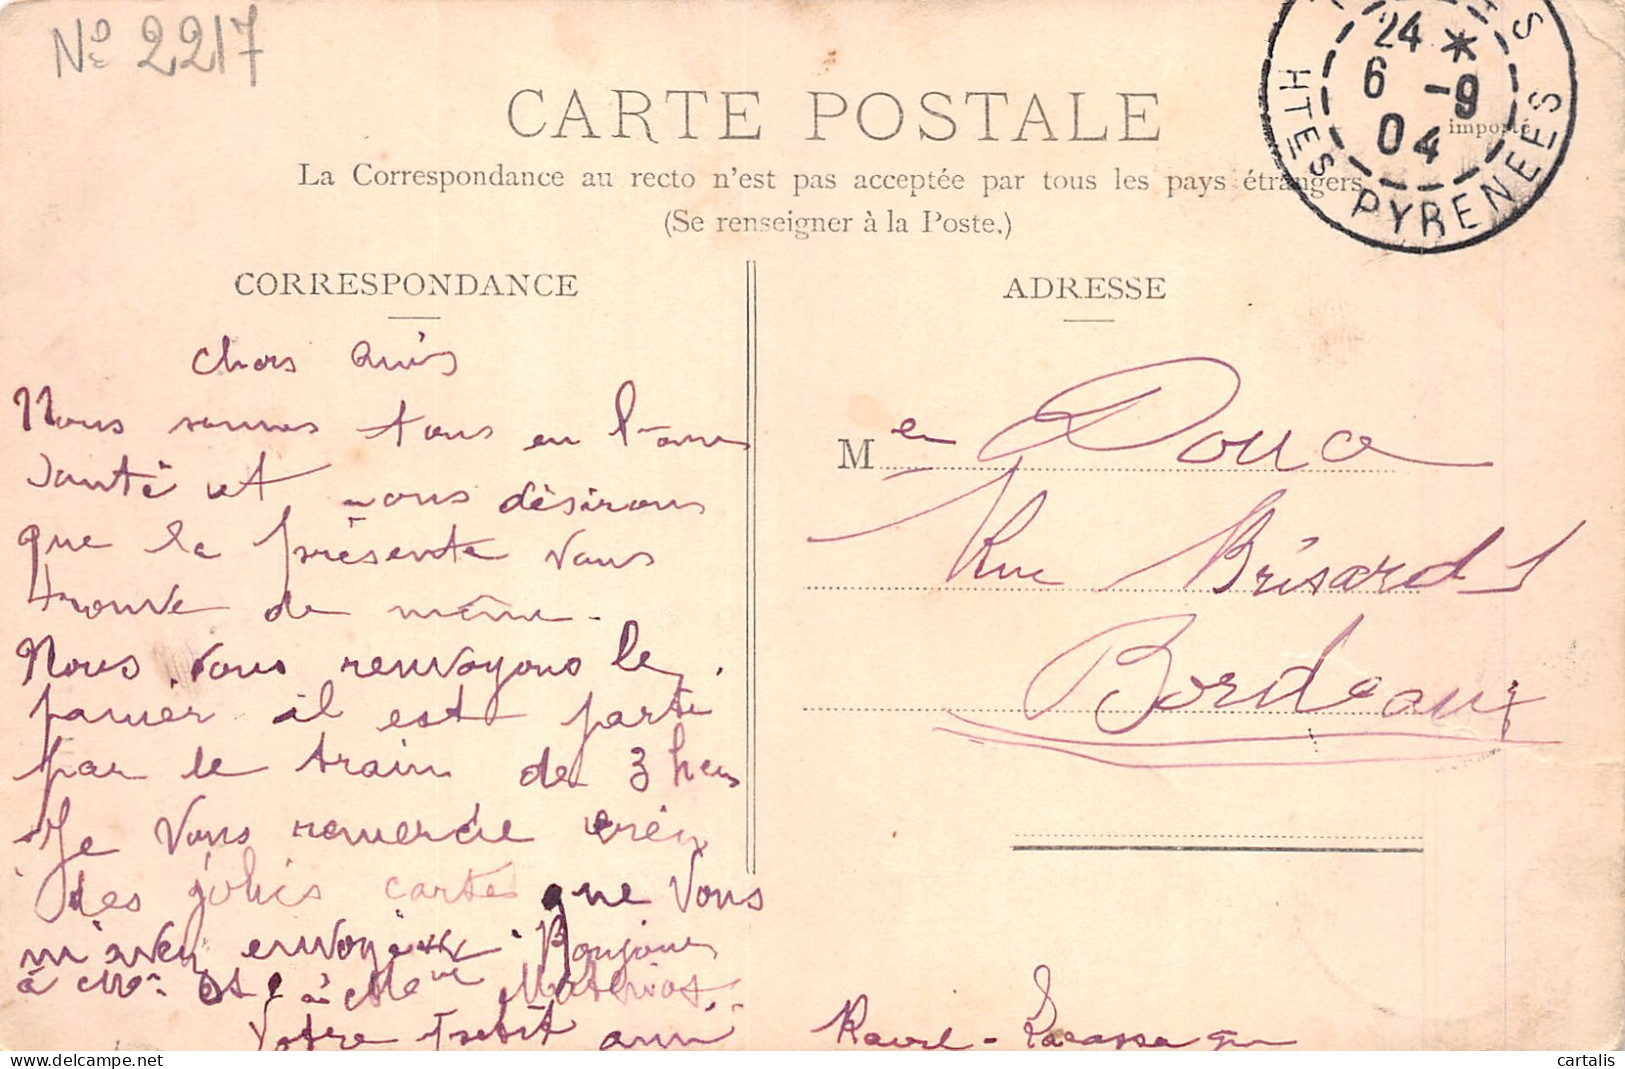 No 2217
24 *
6 -9
04
HTES PYRENEES
CARTE POSTALE
importé
La Correspondance au recto n'est pas acceptée par tous les pays étrangers
(Se renseigner à la Poste.)
CORRESPONDANCE
chers Amis
Nous sommes tous en bonne
santé et nous désirons
que la présente vous
trouve de même.
Nous vous renvoyons le
panier il est parti
par le train de 3 heurs
Je vous remercie bien
des jolies cartes que vous
m'avez envoyé Bonjour
à Mr et à Mme
Votre petit ami
ADRESSE
M Douce
Rue Brisard 1
Bordeaux
cartalis
www.delcampe.net